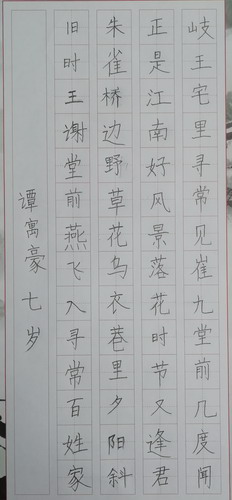 岐王宅里寻常见崔九堂前几度闻
正是江南好风景落花时节又逢君
朱雀桥边野草花乌衣巷里夕阳斜
旧时王谢堂前燕飞入寻常百姓家
谭寓豪 七岁